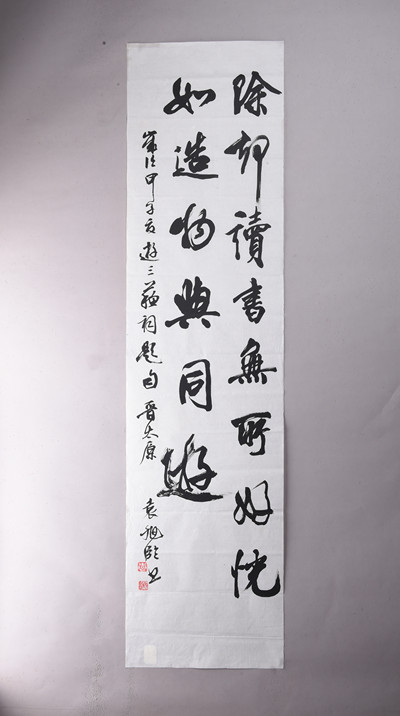 除却讀書無所好恍
如造物與同遊
歲次甲子夏遊三蘇祠題句 晉太原 袁旭臨書